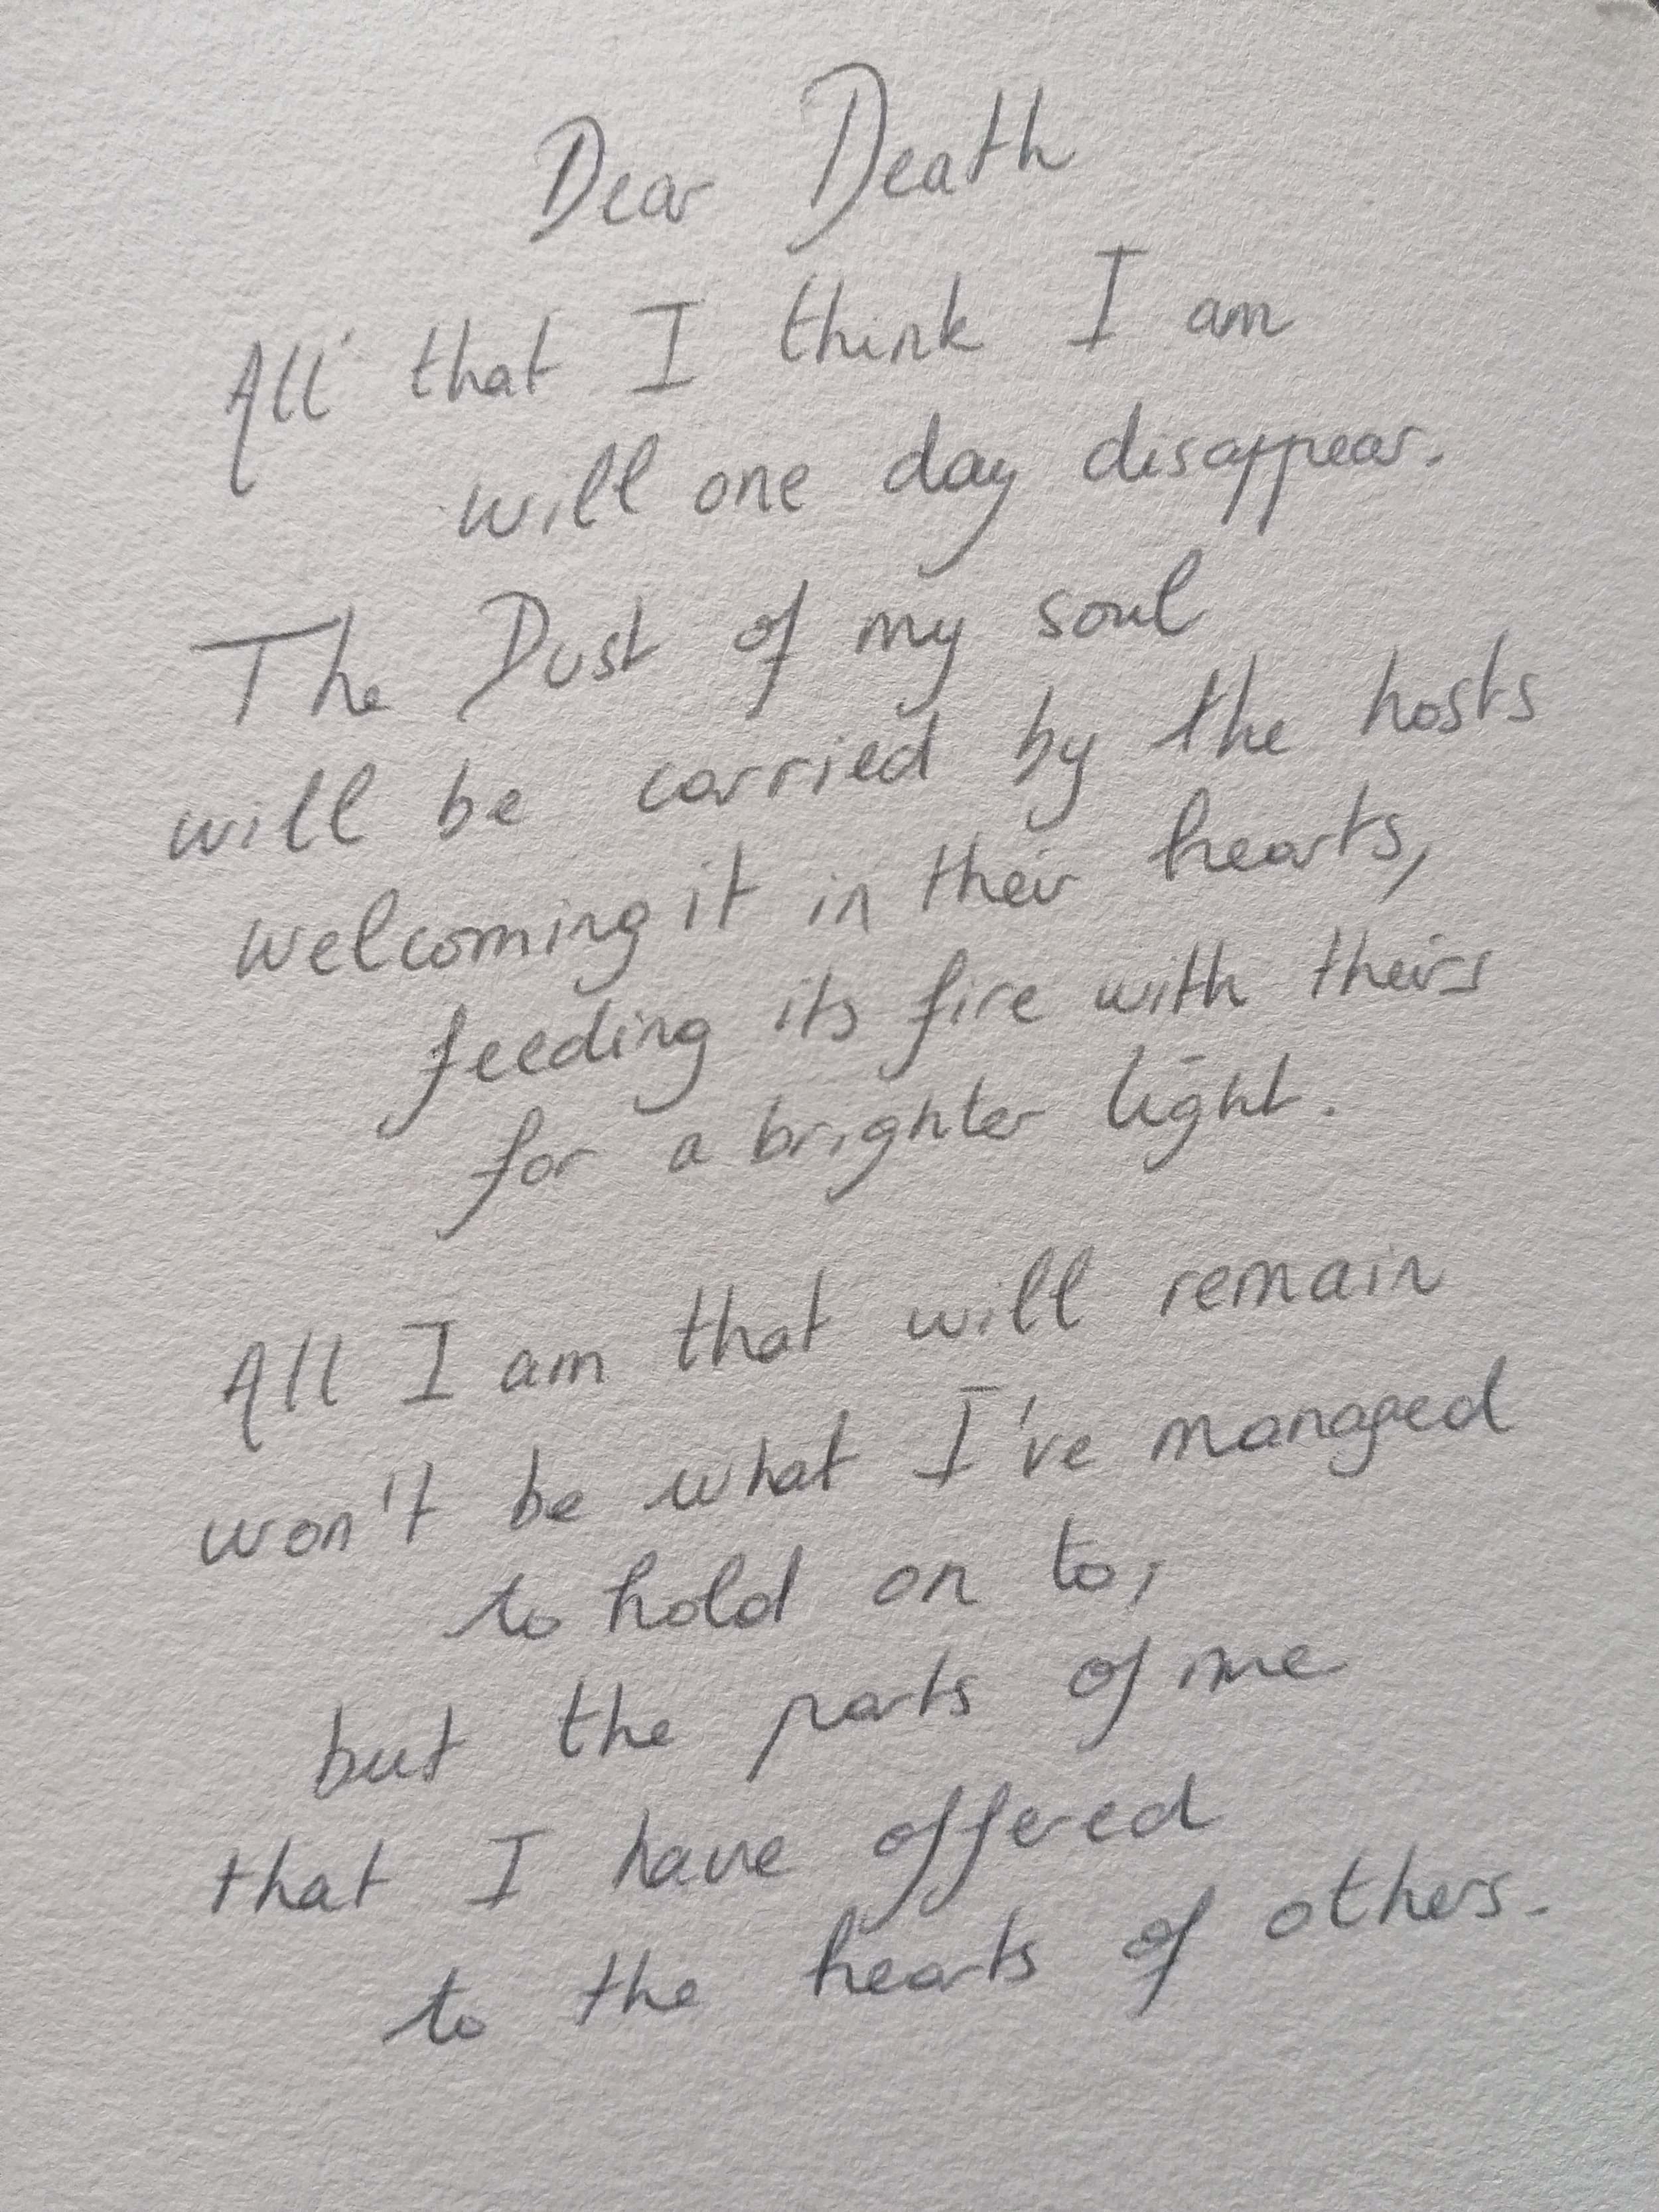 Dear Death
All that I think I am
will one day disappear.
The Dust of my soul
will be carried by the hosts
welcoming it in their hearts,
feeding its fire with theirs
for a brighter light.
All I am that will remain
won't be what I've managed
to hold on to,
but the parts of me
that I have offered
to the hearts of others.